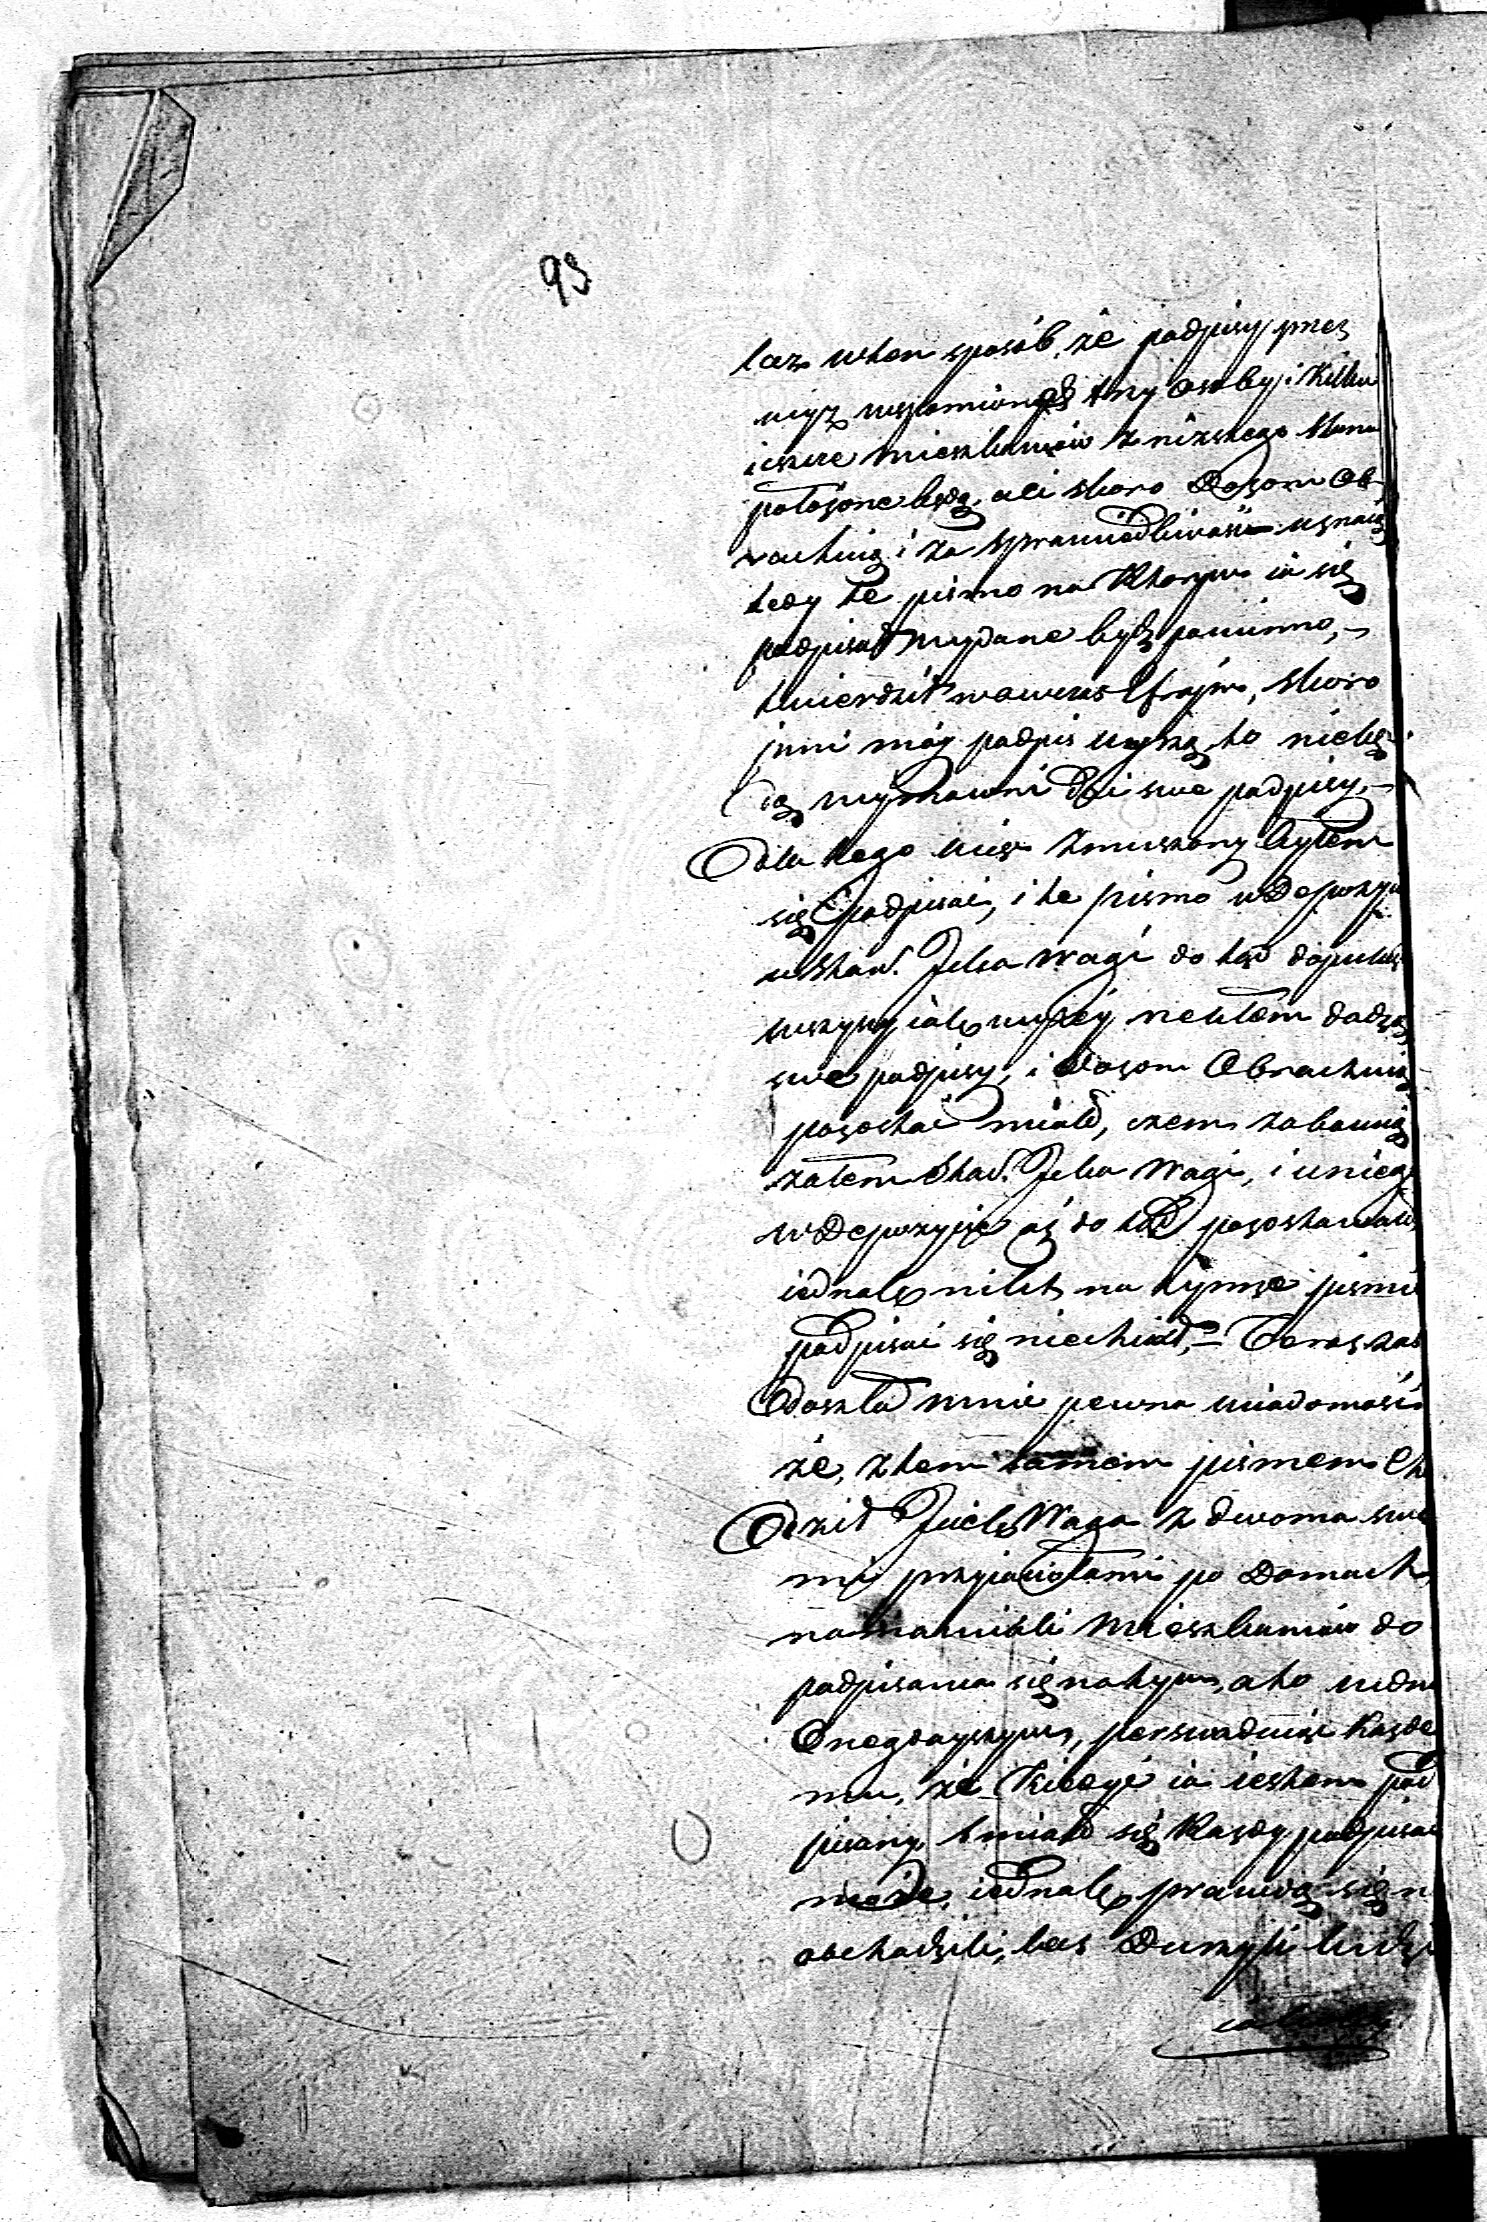 93
lecz w ten sposób, że podpisy przez
wyż wspomionych trzy osoby i kilku
ieszcze mieszkańców z niższego Stanu
położone będą, a ci skoro Dozorn Ob-
rachuią i za sprawiedliwość uznaią
tedy te pismo na którym ia się
podpisał wydane bydź powinno, –
twierdził wówczas Efroim, skoro
inni móy podpis uyrzą, to niebę-
dą wymawni dać swe podpisy. –
Dla tego więc zmuszony byłem
się podpisać, i te pismo w Depozyt
u Star. Jcka Wagi do tąd dopuki
wszyscy iak wyżéy rzekłem dadzą
swe podpisy, i Dozorn Obrachuią
pozostać miało, czem zabawią
zatem Star. Jcka Wagi, i u niego
w Depozycie aż do tąd pozostawało
iednak nikt na tymże piśmie
podpisać się niechciał, – Teraz zaś
Doszła mnie pewna wiadomość
że, z tem samem pismem Cho
dził Jcick Waga z dwoma swe
mi przyiaciołami po Domach,
namawiali Mieszkańców do
podpisania się na tym, a to w dniu
Onegdayszym, perswaduiąc każde
mu, że kiedyć ia iestem pod
pisany, śmiało się każdy podpisać
może, iednak prawią się n
obchodzili, lecz Durzyli ludzi